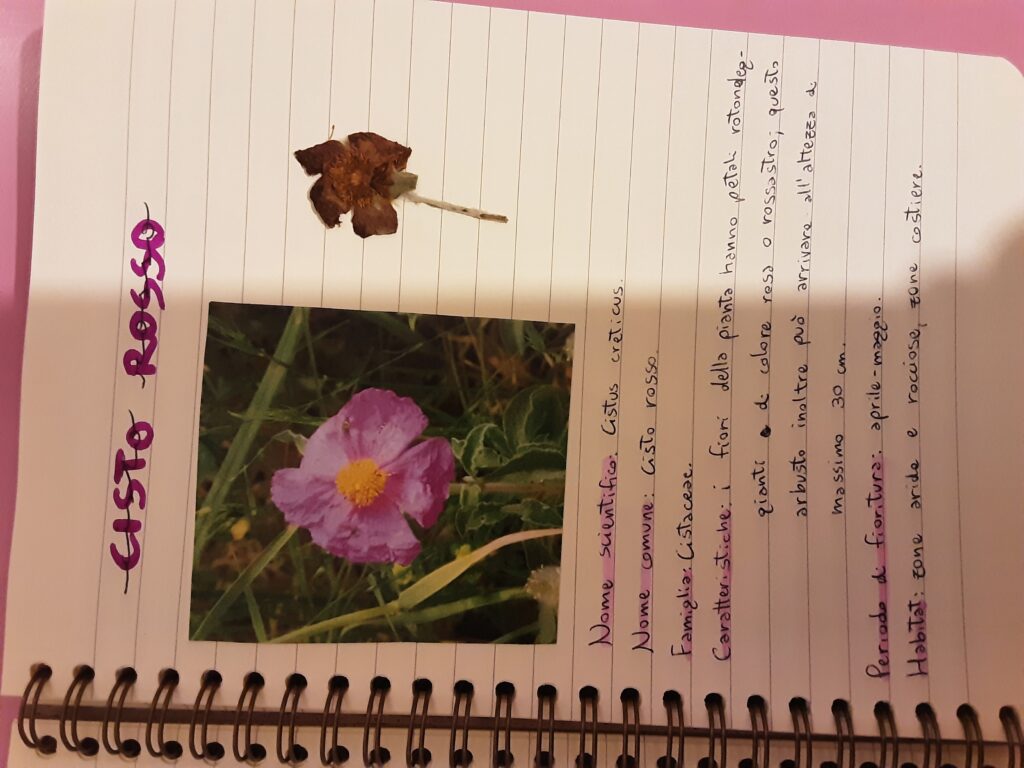 CISTO ROSSO
Nome scientifico: Cistus creticus.
Nome comune: Cisto rosso.
Famiglia: Cistaceae.
Caratteristiche: i fiori della pianta hanno petali rotondeg-
gianti di colore rosa o rossastro; questo
arbusto inoltre può arrivare all'altezza di
massimo 30 cm.
Periodo di fioritura: aprile-maggio.
Habitat: zone aride e rocciose, zone costiere.